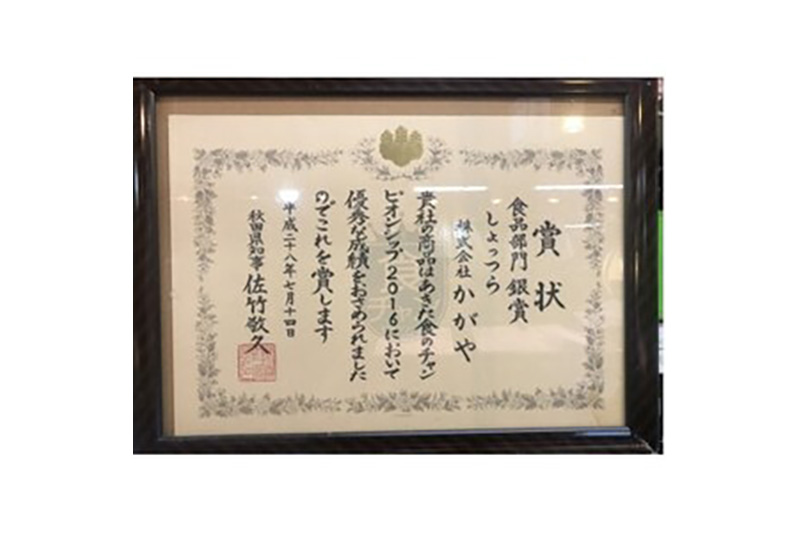 賞状
食品部門 銀賞
しょっつら
株式会社 かがや
貴社の商品はあきた食のチャン
ピオンシップ2016において
優秀な成績をおさめられました
のでこれを賞します
平成二十八年七月十四日
秋田県知事 佐竹敬久